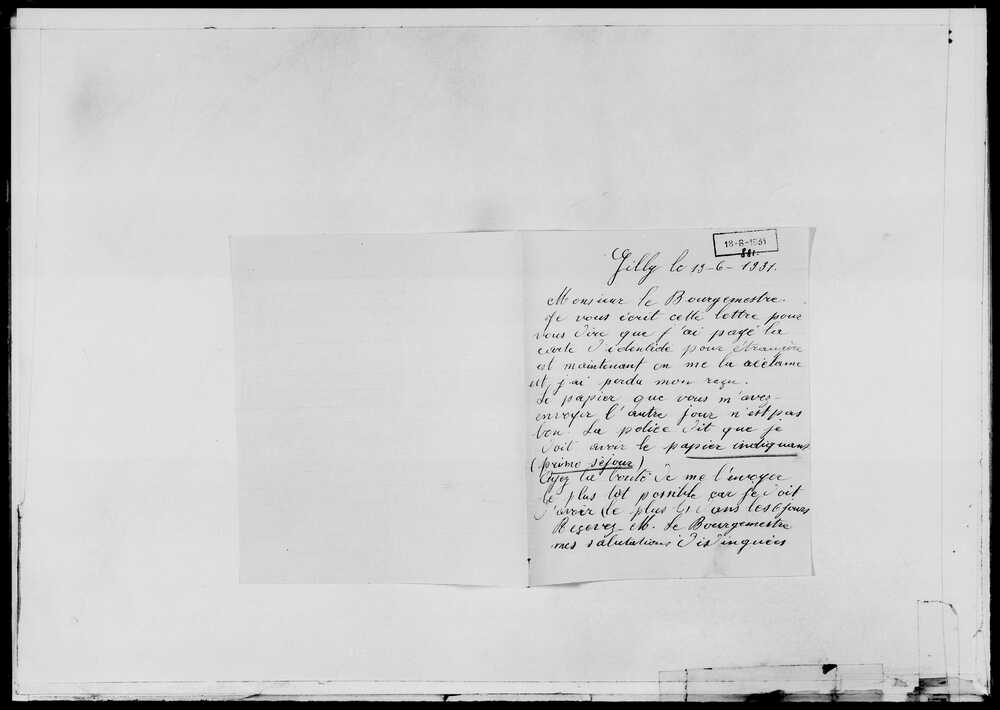 18-8-1931
881.
Gilly le 13-6-1931.
Monsieur le Bourgemestre.
Je vous écrit cette lettre pour
vous dire que j'ai payé la
carte d'identidé pour étrangère
est maintenant on me la réclame
est j'ai perdu mon reçu.
Le papier que vous m'aves
envoyer l'autre jour n'est pas
bon. La police dit que je
doit avoir le papier indiquans
(primo séjour)
Ayez la bonté de me l'envoyer
le plus tôt possible car je doit
l'avoir le plus dans les 8 jours
Reçevez M. le Bourgemestre
mes salutations distinquées